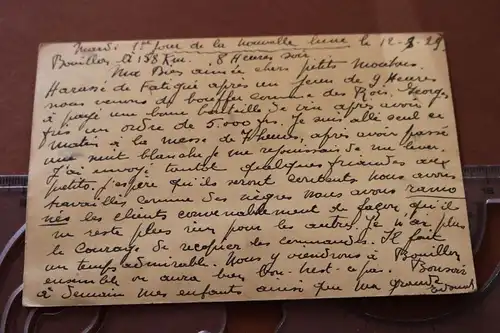 Mardi 1er jour de la nouvelle lune le 12-3-29
Bouillon à 158 Km. 8 Heures soir
Ma Bien aimée chers petits
Harassé de fatigue après un jeun de 9 Heures
nous venons de bouffer comme des Rois. Georges
a payé une bonne bouteille de vin après avoir
pris un ordre de 5.000 frs. Je suis allé seul ce
matin à la messe de 7 heures, après avoir passé
une nuit blanche je me réjouissais de me lever.
J'ai envoyé tantôt quelques friandises aux
petits. J'espère qu'ils seront contents nous avons
travaillé comme des nègres nous avons ramo
nés les clients convenablement de façon qu'il
ne reste plus rien pour les autres. Je n'ai plus
le courage de recopier les commandes. Il fait
un temps admirable. Nous viendrons à Bouillon
ensemble ce sera bien bon n'est-ce pas. Bonsoir
à demain mes enfants ainsi que ma grande